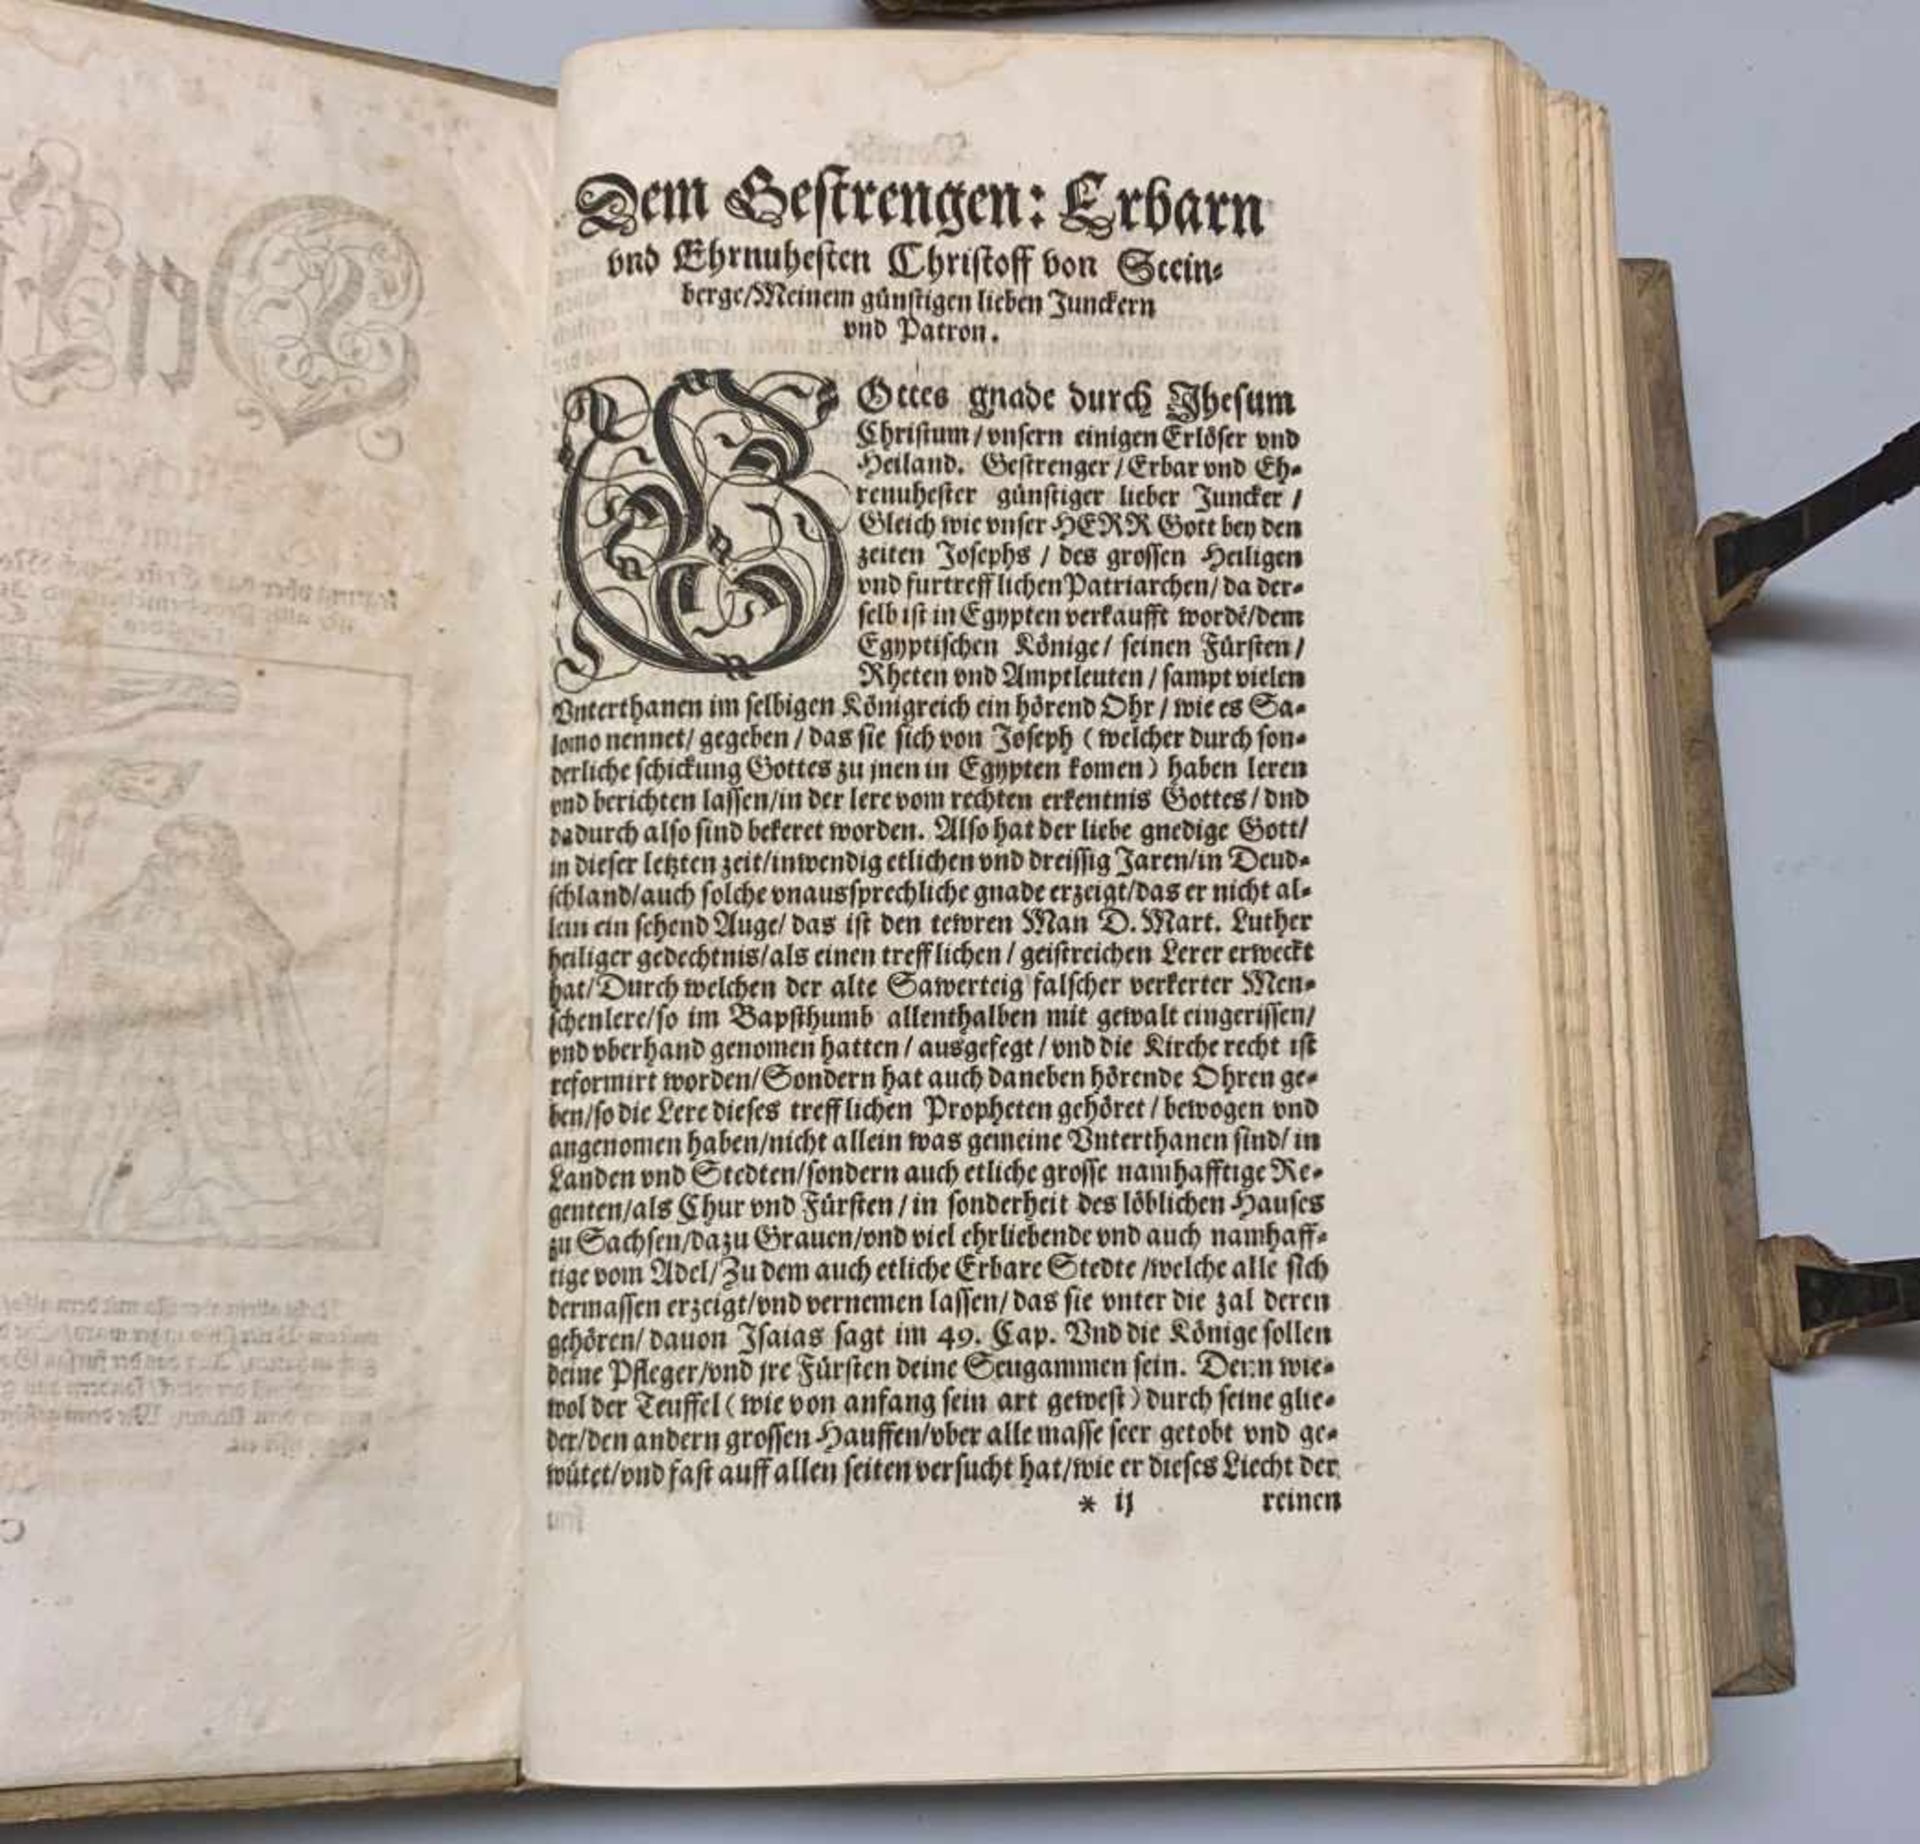 Dem Gestrengen: Erbarn
vnd Ehrnuhesten Christoff von Stein-
berge/Meinem günstigen lieben Junckern
vnd Patron.
GOttes gnade durch Jhesum
Christum/vnsern einigen Erlöser vnd
Heiland. Gestrenger/Erbar vnd Eh-
renuhester günstiger lieber Juncker/
Gleich wie vnser HERR Gott bey den
zeiten Josephs/des grossen Heiligen
vnd furtrefflichen Patriarchen/da der-
selb ist in Egypten verkaufft wordē/dem
Egyptischen Könige/seinen Fürsten/
Rheten vnd Amptleuten/sampt vielen
Vnterthanen im selbigen Königreich ein hörend Ohr/wie es Sa-
lomo nennet/gegeben/das sie sich von Joseph (welcher durch son-
derliche schickung Gottes zu jnen in Egypten komen) haben leren
vnd berichten lassen/in der lere vom rechten erkentnis Gottes/vnd
dadurch also sind bekeret worden. Also hat der liebe gnedige Gott/
in dieser letzten zeit/inwendig etlichen vnd dreissig Jaren/in Deud-
schland/auch solche vnaussprechliche gnade erzeigt/das er nicht al-
lein ein sehend Auge/das ist den tewren Man D. Mart. Luther
heiliger gedechtnis/als einen trefflichen/geistreichen Lerer erweckt
hat/Durch welchen der alte Sawerteig falscher verkerter Men-
schenlere/so im Bapsthumb allenthalben mit gewalt eingerissen/
vnd vberhand genomen hatten/ausgefegt/vnd die Kirche recht ist
reformirt worden/Sondern hat auch daneben hörende Ohren ge-
ben/so die Lere dieses trefflichen Propheten gehöret/bewogen vnd
angenomen haben/nicht allein was gemeine Vnterthanen sind/in
Landen vnd Stedten/sondern auch etliche grosse namhafftige Re-
genten/als Chur vnd Fürsten/in sonderheit des löblichen Hauses
zu Sachsen/dazu Grauen/vnd viel ehrliebende vnd auch namhaff-
tige vom Adel/Zu dem auch etliche Erbare Stedte/welche alle sich
dermassen erzeigt/vnd vernemen lassen/das sie vnter die zal deren
gehören/dauon Isaias sagt im 49. Cap. Vnd die Könige sollen
deine Pfleger/vnd jre Fürsten deine Seugammen sein. Denn wie-
wol der Teuffel (wie von anfang sein art gewest) durch seine glie-
der/den andern grossen Hauffen/vber alle masse seer getobt vnd ge-
wütet/vnd fast auff allen seiten versucht hat/wie er dieses Liecht der
* ij reinen